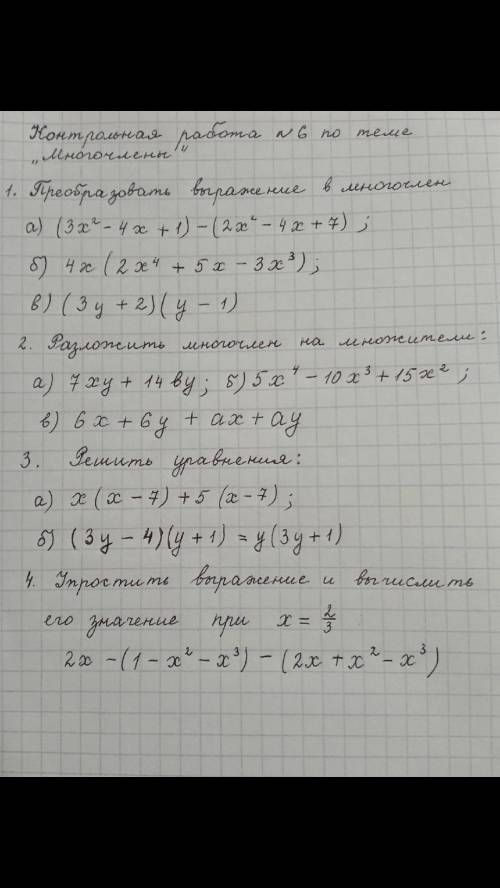 Контрольная работа №6 по теме
„Многочлены"
1. Преобразовать выражение в многочлен
а) (3x² - 4x + 1) - (2x² - 4x + 7) ;
б) 4x (2x⁴ + 5x - 3x³) ;
в) (3y + 2)(y - 1)
2. Разложить многочлен на множители:
а) 7xy + 14by ; б) 5x⁴ - 10x³ + 15x² ;
в) 6x + 6y + ax + ay
3. Решить уравнения:
а) x (x - 7) + 5 (x - 7) ;
б) (3y - 4)(y + 1) = y(3y + 1)
4. Упростить выражение и вычислить
его значение при x = 2/3
2x - (1 - x² - x³) - (2x + x² - x³)